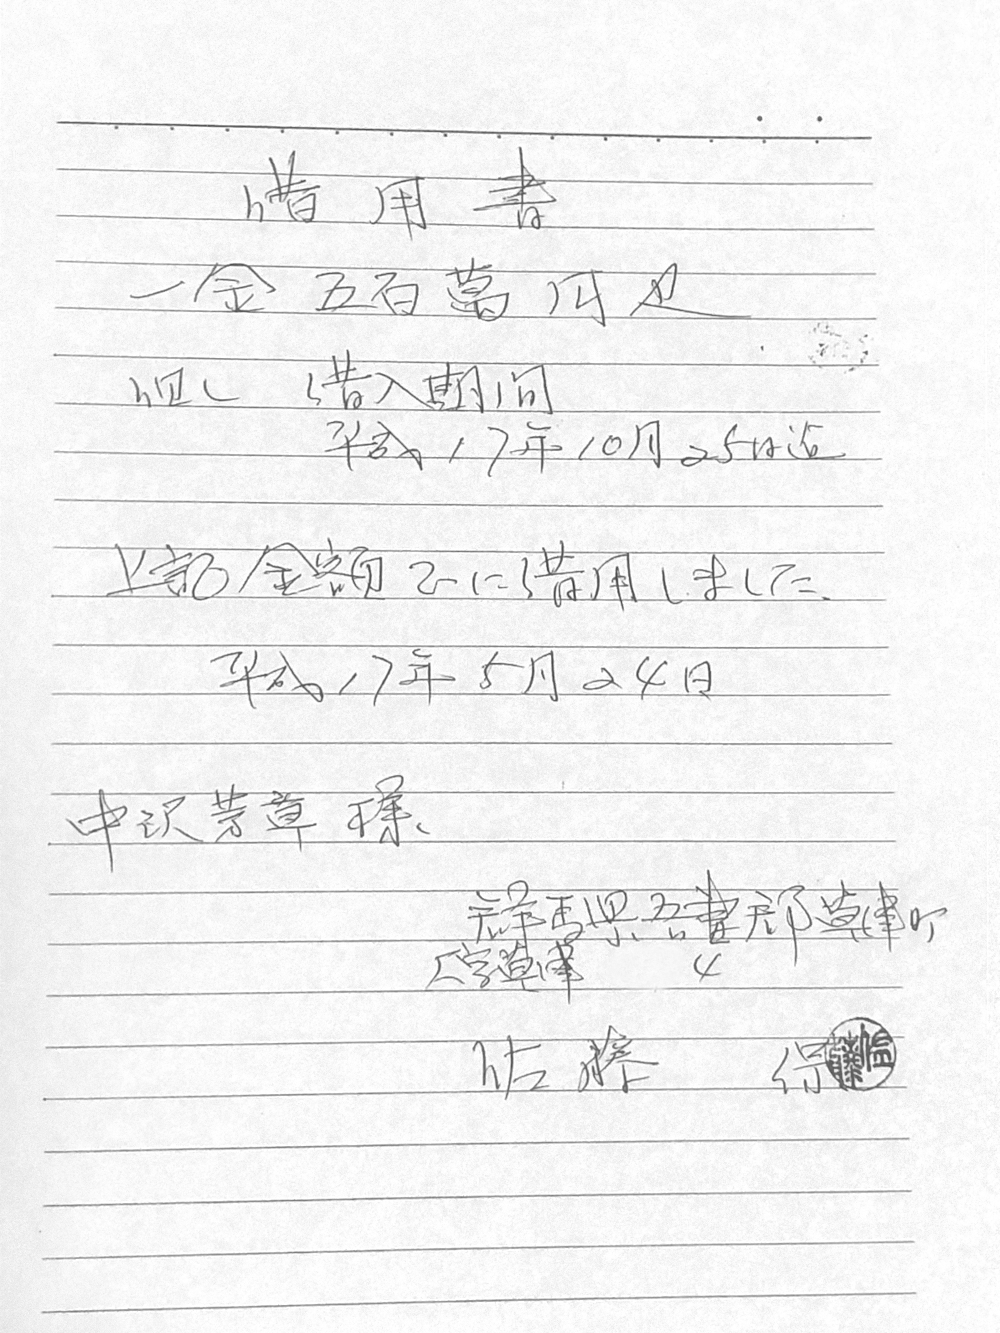 借用書
一金 五百萬円也
但し 借入期間
平成17年10月25日迄
上記金額正に借用しました。
平成17年5月24日
中沢芳章様
群馬県吾妻郡草津町
大字草津 4
佐藤 保
佐藤